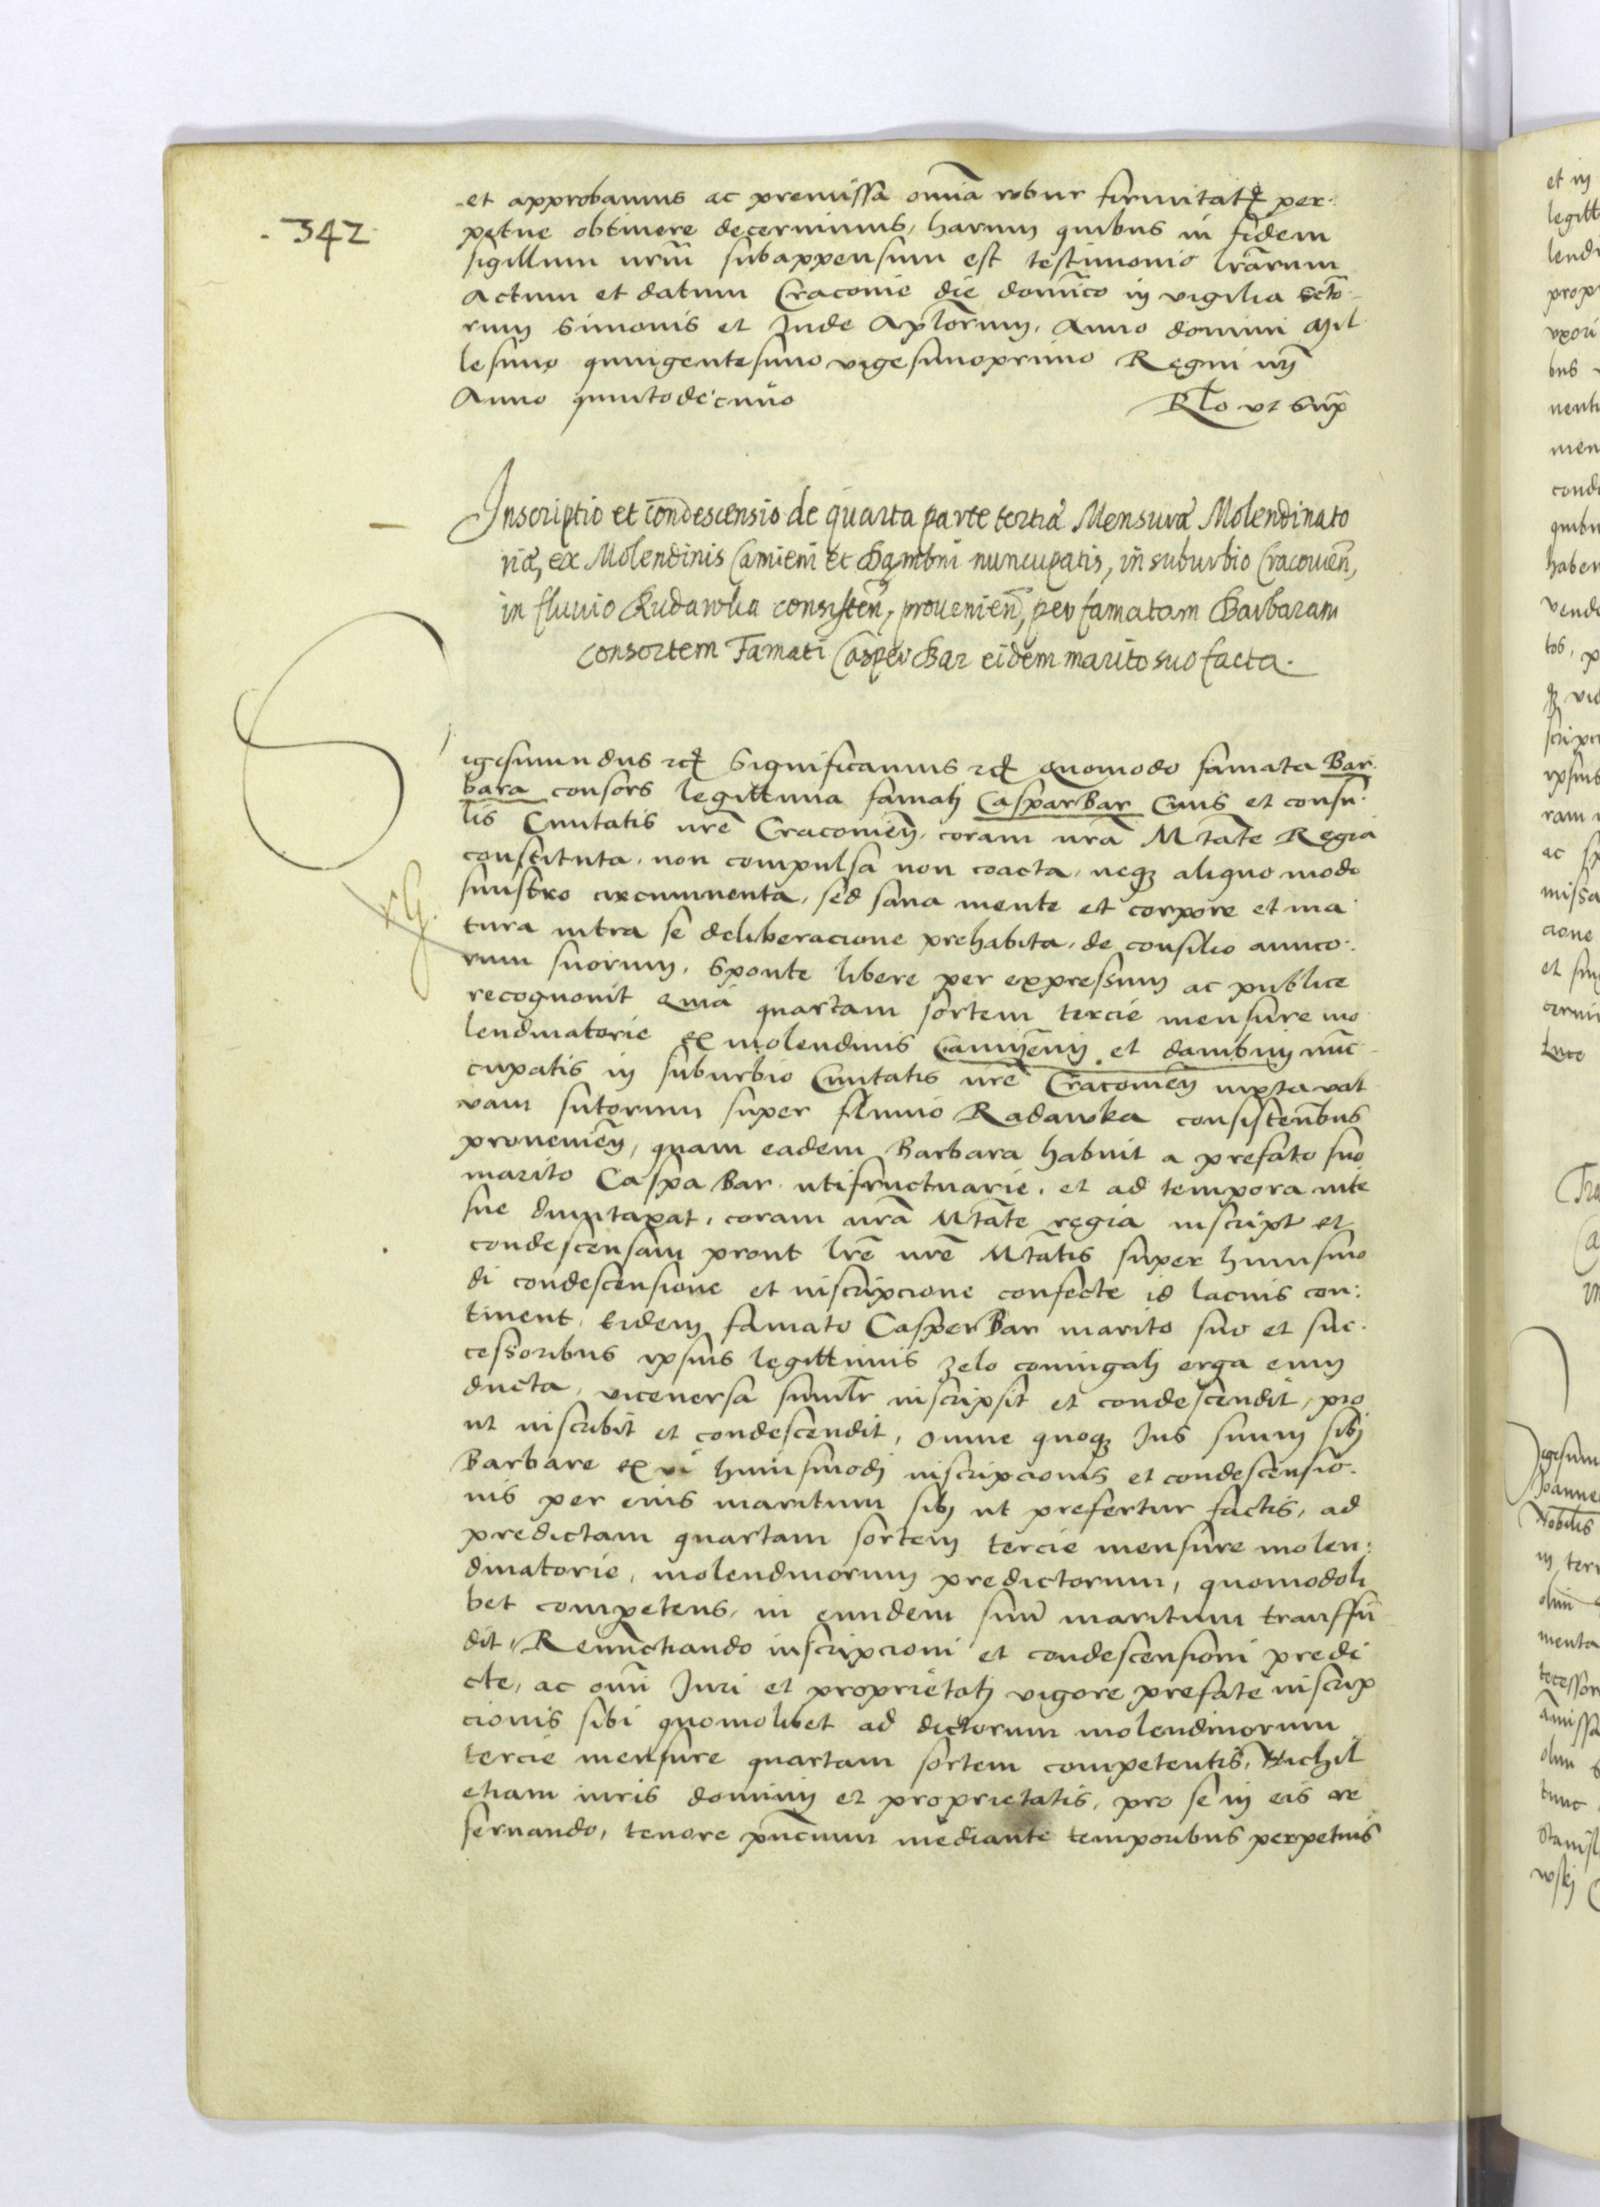 342
et approbamus ac premissa omīa robur firmitatꝭ per:
petue obtinere decernimus, harum quibus in fidem
sigillum nrūm subappensum est testimonio lrārum
Actum et datum Cracovie die domīco in vigilia sctō-
rum Simonis et Jude Aplōrum, Anno domini Mil
lesimo quingentesimo vigesimoprimo Regni nrī
Anno quintodecimo Rlō ut supͣ
Inscriptio et condescensio de quarta parte tertiæ Mensuræ Molendinato
riæ, ex Molendinis Camieni et Dambni nuncupatis, in suburbio Cracovien̄,
in fluvio Rudawka consisten̄, provenien̄, per famatam Barbaram
consortem Famati Casper Bar eidem marito suo facta.
Sigismundus etc̄ Significamus etc̄ Quomodo famata Bar:
bara consors legittima famati Caspar Bar Civis et consu:
lis Civitatis nrē Cracovien̄, coram nrā Mtāte Regia
constituta, non compulsa non coacta, neqꝫ aliquo modo
sinistro circumventa, sed sana mente et corpore et ma
tura intra se deliberacione prehabita, de consilio amico:
rum suorum, Sponte libere per expressum ac publice
recognovit Quia quartam sortem tercie mensure mo
lendinatorie ex molendinis Camyeny et dambny nun̄
cupatis in suburbio Civitatis nrē Cracovien̄ iuxta val
vam sutorum super fluvio Radawka consisten̄bus
provenien̄, quam eadem Barbara habuit a prefato suo
marito Caspa Bar utifructuarie, et ad tempora vite
sue duntaxat, coram nrā Mtāte regia inscript et
condescensam prout lrē nrē Mtātis super huiusmo
di condescensione et inscripcione confecte id lacius con:
tinent, Eidem famato Casper Bar marito suo et suc:
cessoribus ipsius legittimis zelo coniugali erga eum
ducta, viceversa similr̄ inscripsit et condescendit, pro
ut inscribit et condescendit, omne quoqꝫ Jus suum sibi
Barbare ex vi huiusmodi inscripcionis et condescensio:
nis per eius maritum sibi ut prefertur factis, ad
predictam quartam sortem tercie mensure molen:
dinatorie, molendinorum predictorum, quomodoli
bet competens, in eundem suum maritum transfu̅
dit, Renun̄ctiando inscripcioni et condescensioni predi
cte, ac omī Juri et proprietati vigore prefate inscrip
cionis sibi quomolibet ad dictorum molendinorum
tercie mensure quartam sortem competentis, Nichil
etiam iuris dominii et proprietatis, pro se in eis re
servando, tenore pn̄cium mediante temporibus perpetuis